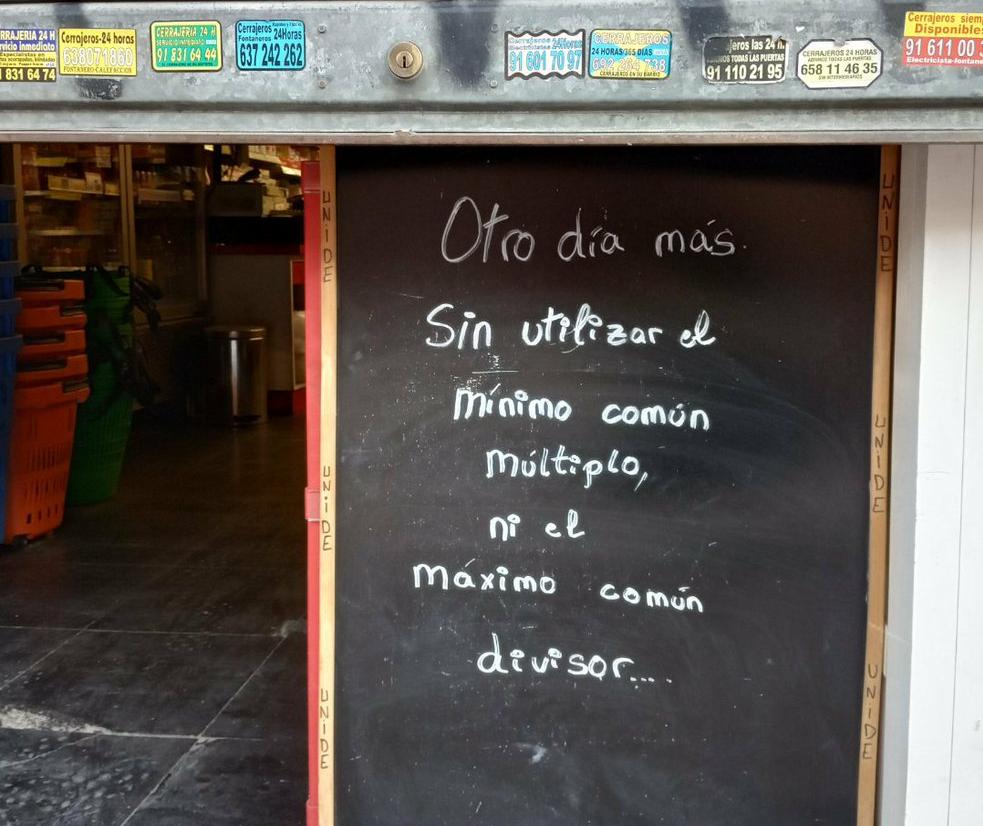 CERRAJERIA 24 H
Servicio inmediato
831 64 74
Cerrajeros-24 horas
638071860
FONTANERO-CALEFACCION
CERRAJERIA 24 H
SERVICIO INMEDIATO
91 831 64 44
Cerrajeros
Fontaneros 24Horas
637 242 262
Cerrajeros 24Horas
91 601 70 97
CERRAJEROS
24 HORAS/365 DÍAS
692 264 738
CERRAJEROS EN SU BARRIO
jeros las 24 h
TODAS LAS PUERTAS
91 110 21 95
CERRAJEROS 24 HORAS
ABRIMOS TODAS LAS PUERTAS
658 11 46 35
SIN INTERMEDIARIOS
Cerrajeros siem
Disponibles
91 611 00 3
Electricista-fontane
Otro día más.
Sin utilizar el
mínimo común
múltiplo,
ni el
máximo común
divisor....
UNIDE
UNIDE
UNIDE
UNIDE
UNIDE
UNIDE